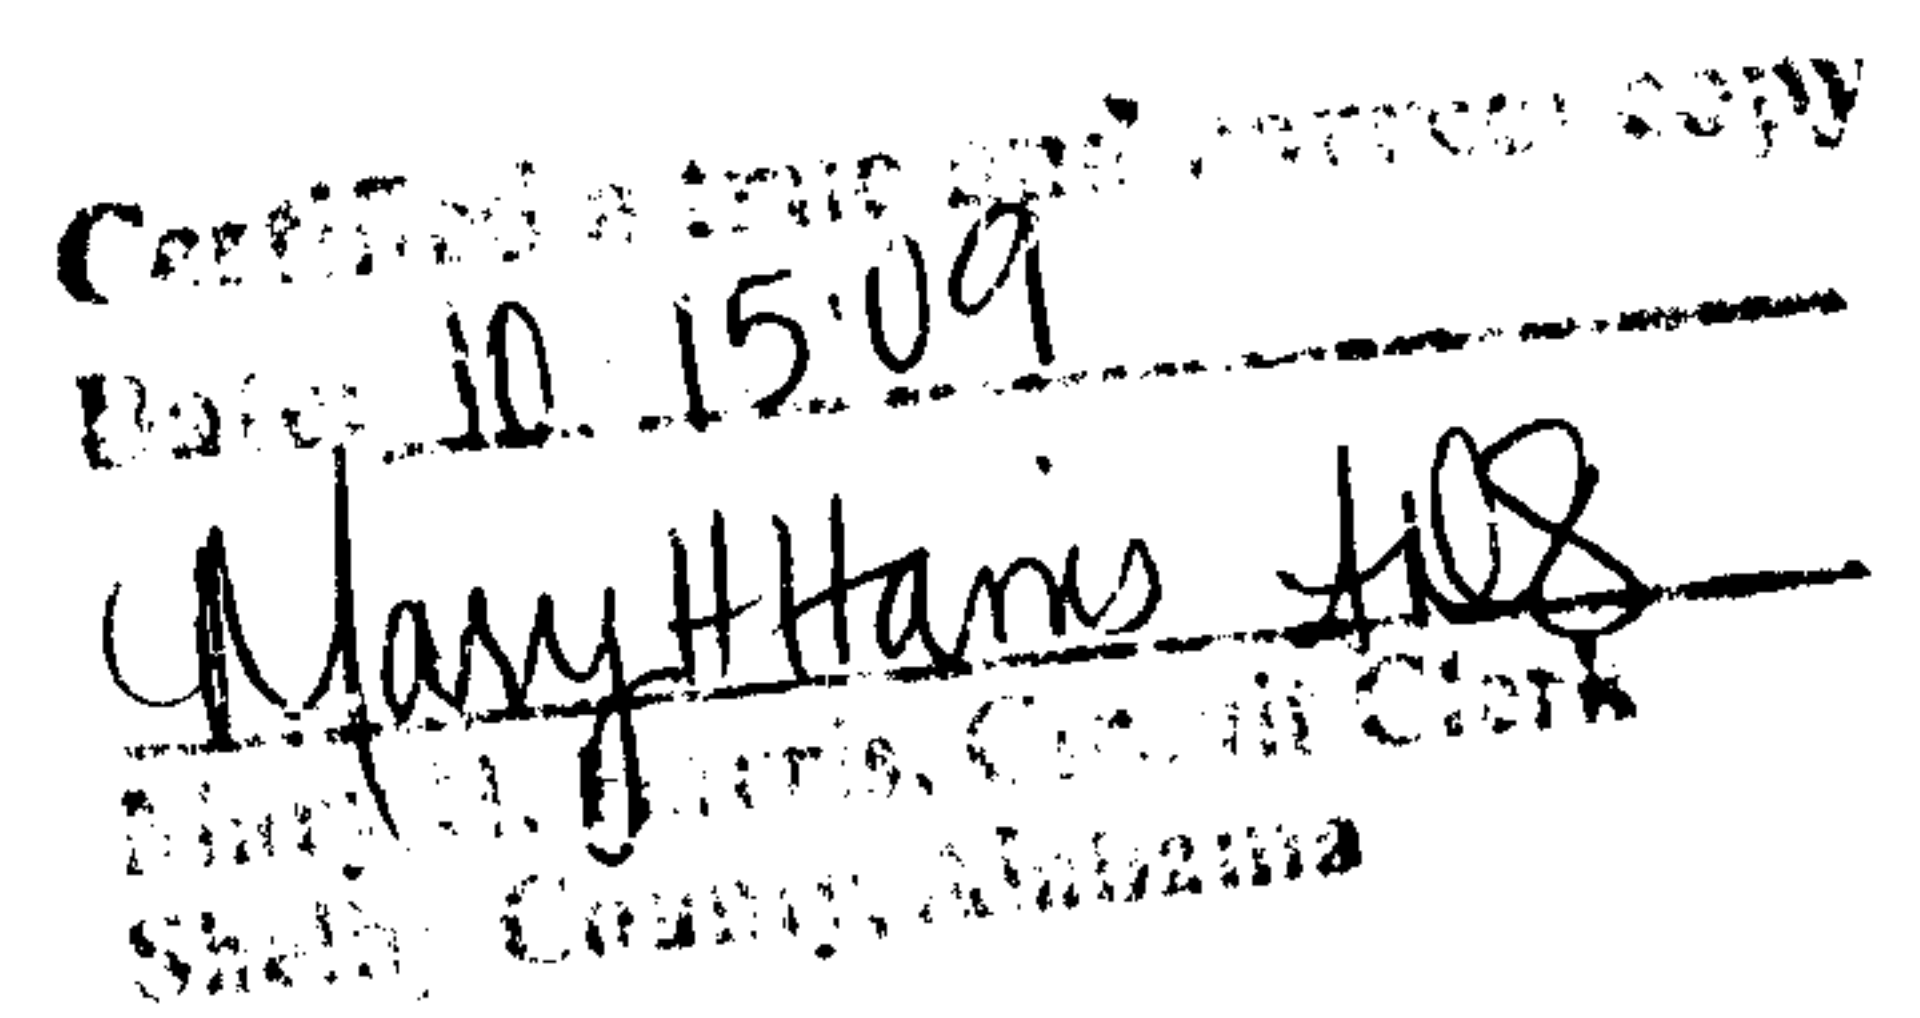 Certified a true and correct copy
Date: 10 15.09
Mary H Harris
Mary H. Harris, Circuit Clerk
Shelby County, Alabama